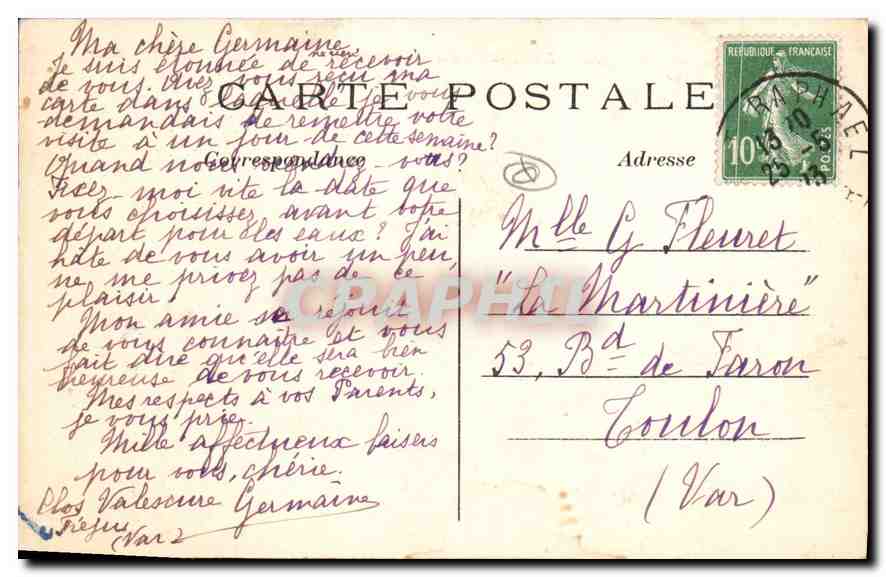 Ma chère Germaine,
Je suis étonnée de recevoir
de vous. Avez vous reçu ma
carte dans laquelle je vous
demandais de remettre votre
visite à un jour de cette semaine?
Quand nous vous?
Fixez-moi vite la date que
vous choisissez avant votre
départ pour les eaux? J'ai
hâte de vous avoir un peu,
ne me privez pas de ce
plaisir!
Mon amie se réjouit
de vous connaître et vous
fait dire qu'elle sera bien
heureuse de vous recevoir.
Mes respects à vos Parents,
je vous prie.
Mille affectueux baisers
pour vous, chérie.
Germaine
Clos Valescure
Fréjus
(Var)
CARTE POSTALE
Correspondance
Adresse
REPUBLIQUE FRANÇAISE
10
POSTES
RAPHAEL
13 10
25 -6
13
Mlle G Fleuret
"La Martinière"
53, Bd de Faron
Toulon
(Var)
CPAPHIL